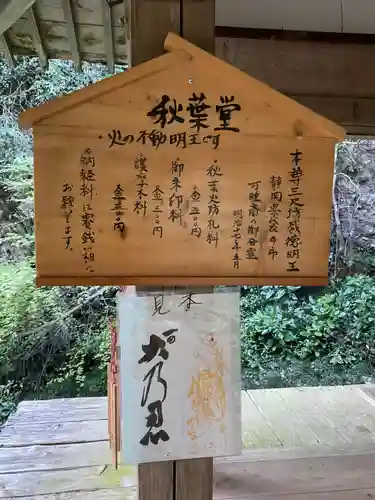 秋葉堂
・火の不動明王です
本尊三尺坊威徳明王
静岡県袋井市
可睡斎の御分霊
明治十七年五月
・秋葉火防札料
金三〇〇円
御朱印料
金三〇〇円
護摩木料
金三〇〇円
・納経料は賽銭箱に
お願します
見本
火乃忍